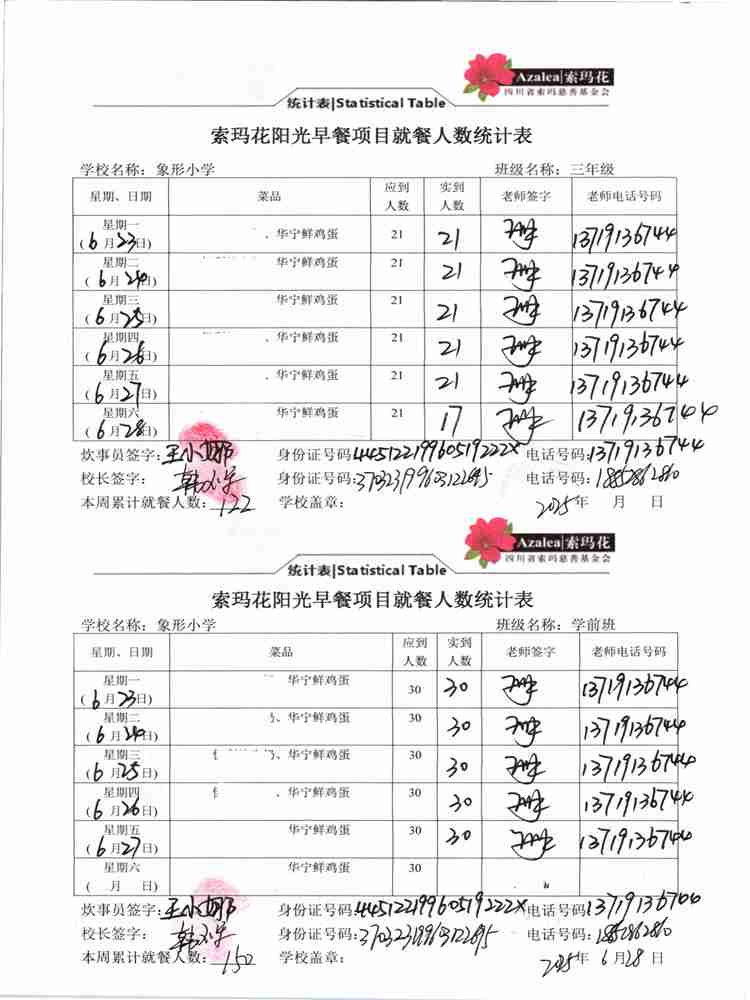 Azalea|索玛花
四川省索玛慈善基金会
统计表|Statistical Table
索玛花阳光早餐项目就餐人数统计表
学校名称：象形小学 班级名称：三年级
星期、日期 菜品 应到人数 实到人数 老师签字 老师电话号码
星期一 (6月23日) 、华宁鲜鸡蛋 21 21 13719136744
星期二 (6月24日) 华宁鲜鸡蛋 21 21 13719136744
星期三 (6月25日) 华宁鲜鸡蛋 21 21 13719136744
星期四 (6月26日) 、华宁鲜鸡蛋 21 21 13719136744
星期五 (6月27日) 、华宁鲜鸡蛋 21 21 13719136744
星期六 (6月28日) 华宁鲜鸡蛋 21 17 13719136744
炊事员签字：王小娜 身份证号码：44512219960519222X 电话号码：13719136744
校长签字： 身份证号码： 电话号码：
本周累计就餐人数：122 学校盖章： 2025年 月 日
Azalea|索玛花
四川省索玛慈善基金会
统计表|Statistical Table
索玛花阳光早餐项目就餐人数统计表
学校名称：象形小学 班级名称：学前班
星期、日期 菜品 应到人数 实到人数 老师签字 老师电话号码
星期一 (6月23日) 华宁鲜鸡蛋 30 30 13719136744
星期二 (6月24日) 、华宁鲜鸡蛋 30 30 13719136744
星期三 (6月25日) 、华宁鲜鸡蛋 30 30 13719136744
星期四 (6月26日) 、华宁鲜鸡蛋 30 30 13719136744
星期五 (6月27日) 华宁鲜鸡蛋 30 30 13719136744
星期六 ( 月 日) 华宁鲜鸡蛋 30
炊事员签字：王小娜 身份证号码：44512219960519222X 电话号码：13719136744
校长签字： 身份证号码： 电话号码：
本周累计就餐人数：150 学校盖章： 2025年6月28日